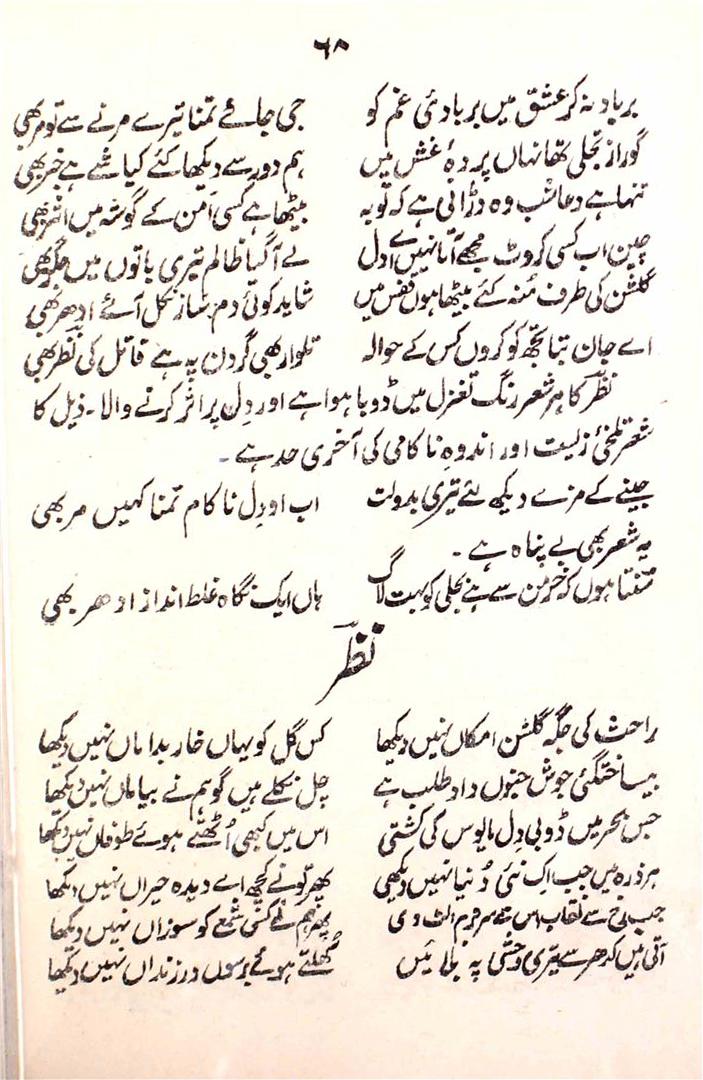 ۶۸
برباد نہ کر عشق میں بربادئ غم کو جی جائے تمنا تیرے مرنے سے تو مر بھی
گو راز تجلی تھا نہاں پردۂ غش میں ہم دور سے دیکھا کئے کیا شے ہے خبر بھی
تنہا ہے دعا شب وہ ڈرانی ہے کہ توبہ بیٹھا ہے کسی امن کے گوشہ میں اثر بھی
چین اب کسی کروٹ مجھے آتا نہیں اے دل لے آ گیا ظالم تیری باتوں میں جگر بھی
گلشن کی طرف منہ کئے بیٹھا ہوں قفس میں شاید کوئی دم ساز نکل آئے ادھر بھی
اے جان بتا تجھ کو کروں کس کے حوالہ تلوار بھی گردن پہ ہے قاتل کی نظر بھی
نظر کا ہر شعر رنگ تغزل میں ڈوبا ہوا ہے اور دل پر اثر کرنے والا۔ ذیل کا
شعر تلخئ زیست اور اندوہ ناکامی کی آخری حد ہے۔
جینے کے مزے دیکھ لئے تیری بدولت اب او دل ناکام تمنا کہیں مر بھی
یہ شعر بھی بے پناہ ہے۔
سنتا ہوں کہ خرمن سے ہے بجلی کو بہت لاگ ہاں ایک نگاہ غلط انداز ادھر بھی
نظر
راحت کی جگہ گلشن امکاں نہیں دیکھا کس گل کو یہاں خار بداماں نہیں دیکھا
بیساختگئی جوش جنوں داد طلب ہے چل نکلے ہیں گو ہم نے بیاباں نہیں دیکھا
جس بحر میں ڈوبی دل مایوس کی کشتی اس میں کبھی اُٹھتے ہوئے طوفاں نہیں دیکھا
ہر ذرہ میں جب اک نئی دُنیا نہیں دیکھی پھر تو نے کچھ اے دیدہ حیراں نہیں دیکھا
جب رخ سے نقاب اس نے سر بزم الٹ دی پھر ہم نے کسی شمع کو سوزاں نہیں دیکھا
آتی ہیں کدھر سے تیری وحشی پہ بلائیں کھلتے ہوئے برسوں در زنداں نہیں دیکھا